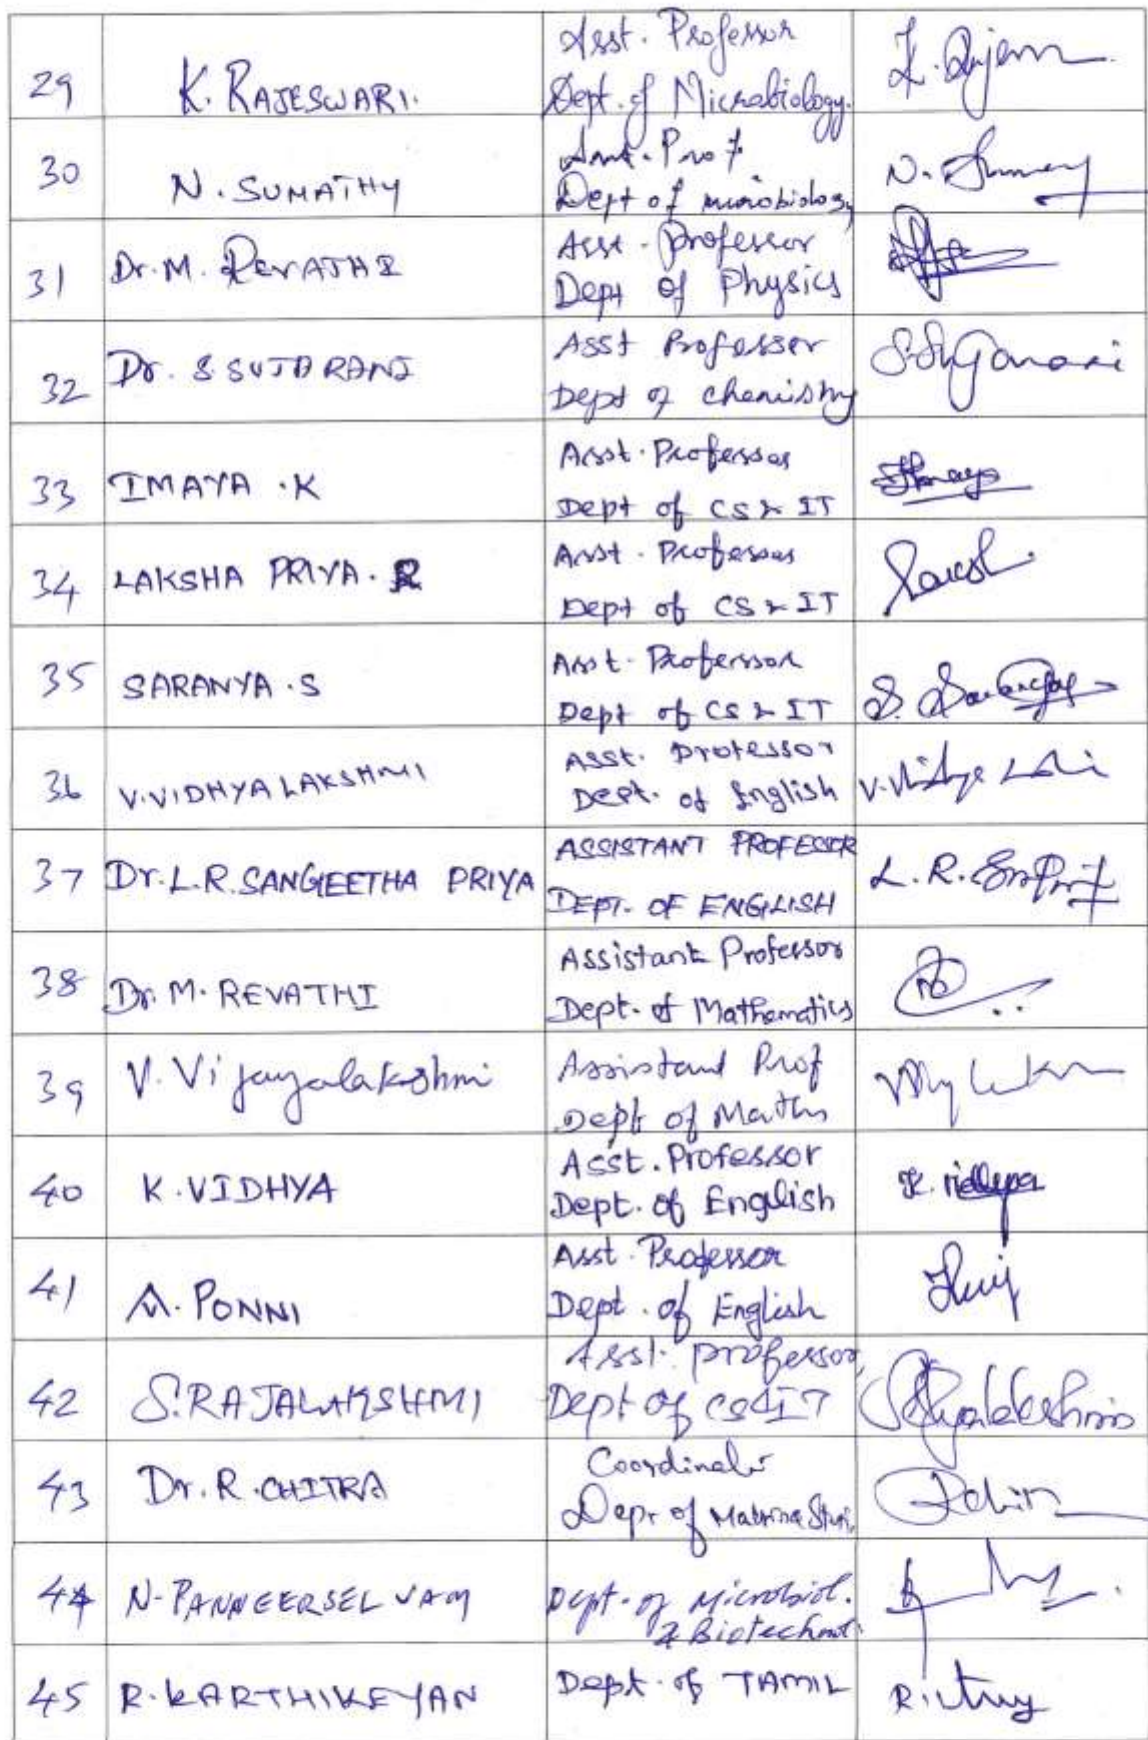 29
K. RAJESWARI.
Asst. Professor
Dept. of Microbiology.
K. Rajesw
30
N. SUMATHY
Asst. Prof
Dept of microbiology
N.
31
Dr. M. REVATHI
Asst. Professor
Dept of Physics
32
Dr. S SUJA RANI
Asst Professor
Dept of chemistry
S. Sujarani
33
IMAYA . K
Asst. Professor
Dept of CS & IT
Imaya
34
LAKSHA PRIYA. R
Asst. Professor
Dept of CS & IT
35
SARANYA . S
Asst. Professor
Dept of CS & IT
S. Saranya
36
V. VIDHYA LAKSHMI
Asst. Professor
Dept. of English
V. Vidhya
37
Dr. L.R. SANGEETHA PRIYA
ASSISTANT PROFESSOR
DEPT. OF ENGLISH
L. R.
38
Dr. M. REVATHI
Assistant Professor
Dept. of Mathematics
39
V. Vijayalakshmi
Assistant Prof
Dept of Maths
40
K. VIDHYA
Asst. Professor
Dept. of English
K. Vidhya
41
A. PONNI
Asst. Professor
Dept. of English
42
S. RAJALAKSHMI
Asst. professor,
Dept of CS & IT
S. Rajalakshmi
43
Dr. R. CHITRA
Coordinator
Dept of
44
N. PANNEERSELVAM
Dept. of Microbiol.
& Biotechnol.
45
R. KARTHIKEYAN
Dept. of TAMIL